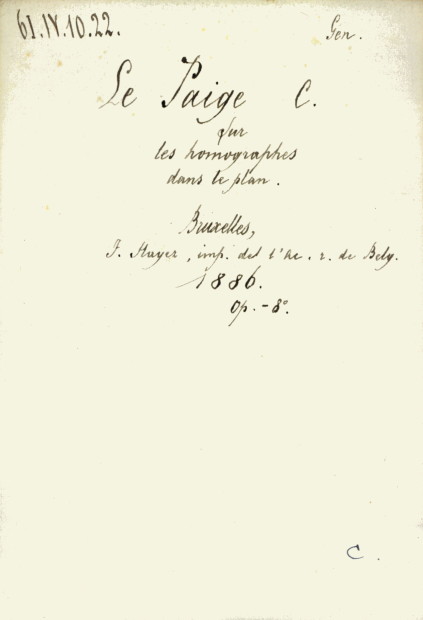 61.IV.10.22.
Gen.
Le Paige C.
Sur
les homographes
dans le plan.
Bruxelles,
F. Hayer, imp. de l'Ac. r. de Belg.
1886.
Op. - 8°.
C.